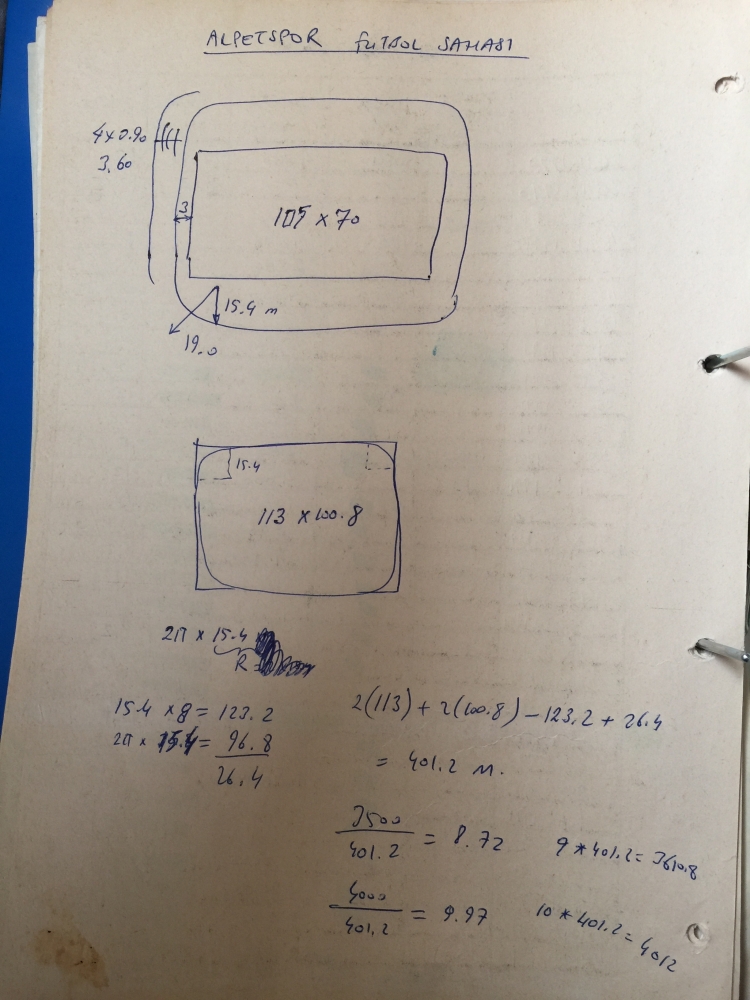 ALPETSPOR FUTBOL SAHASI
4x0.90
3.60
3
105 x 70
15.4 m
19.0
15.4
113 x 100.8
2π x 15.4
R=
15.4 x 8 = 123.2
2π x 15.4 = 96.8
26.4
2(113) + 2(100.8) - 123.2 + 26.4
= 401.2 m.
3500/401.2 = 8.72
9*401.2 = 3610.8
4000/401.2 = 9.97
10*401.2 = 4012